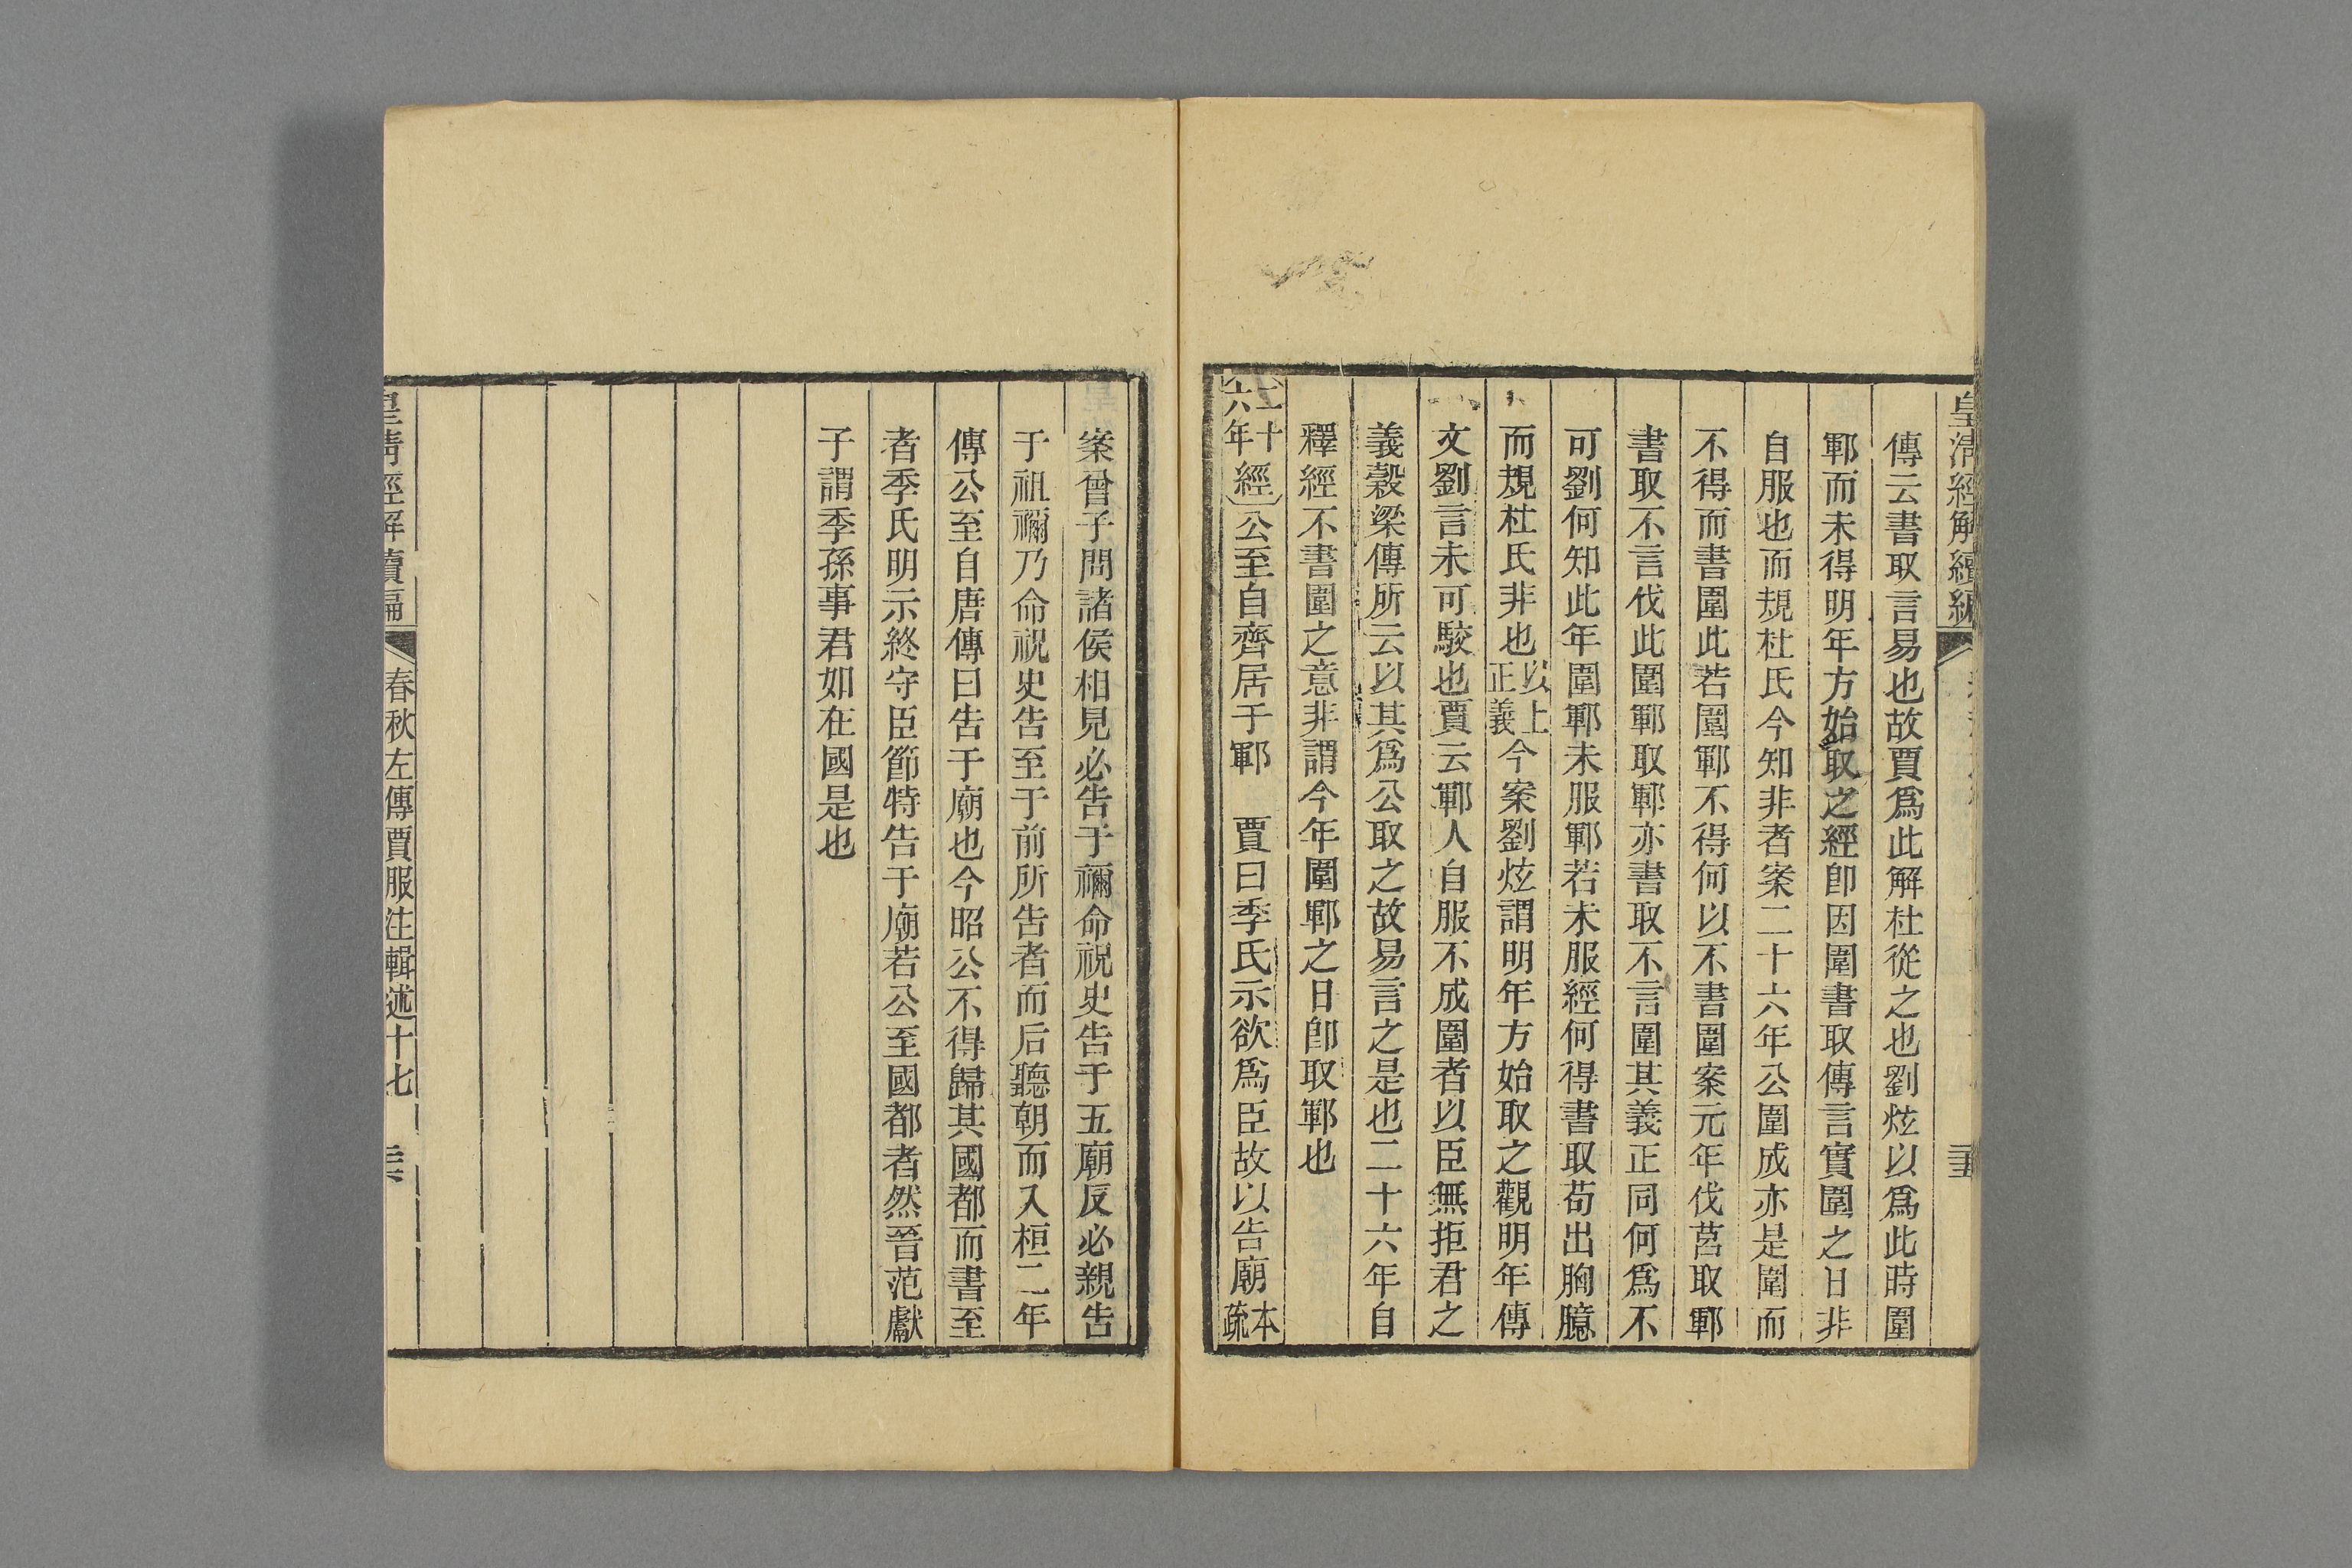 皇清經解續編
三五
傳云書取言易也故賈爲此解杜從之也劉炫以爲此時圍
鄆而未得明年方始取之經卽因圍書取傳言實圍之日非
自服也而規杜氏今知非者案二十六年公圍成亦是圍而
不得而書圍此若圍鄆不得何以不書圍案元年伐莒取鄆
書取不言伐此圍鄆取鄆亦書取不言圍其義正同何爲不
可劉何知此年圍鄆未服鄆若未服經何得書取苟出胸臆
而規杜氏非也以上正義今案劉炫謂明年方始取之觀明年傳
文劉言未可駮也賈云鄆人自服不成圍者以臣無拒君之
義穀梁傳所云以其爲公取之故易言之是也二十六年自
釋經不書圍之意非謂今年圍鄆之日卽取鄆也
二十六年經公至自齊居于鄆　賈曰季氏示欲爲臣故以告廟本疏
案曾子問諸侯相見必告于禰命祝史告于五廟反必親告
于祖禰乃命祝史告至于前所告者而后聽朝而入桓二年
傳公至自唐傳曰告于廟也今昭公不得歸其國都而書至
者季氏明示終守臣節特告于廟若公至國都者然晉范獻
子謂季孫事君如在國是也
皇清經解續編
春秋左傳賈服注輯述十七
三六